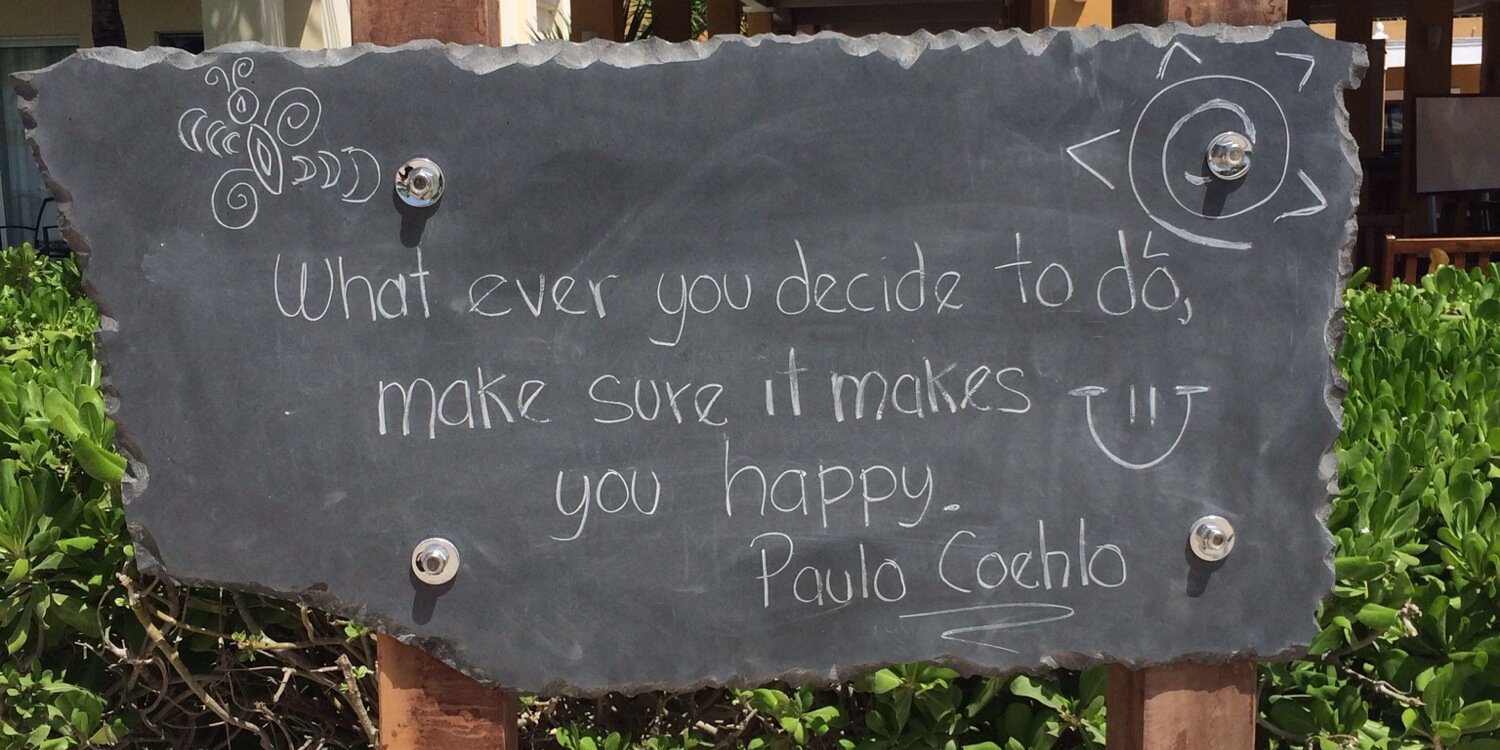 What ever you decide to do,
make sure it makes
you happy.
Paulo Coehlo